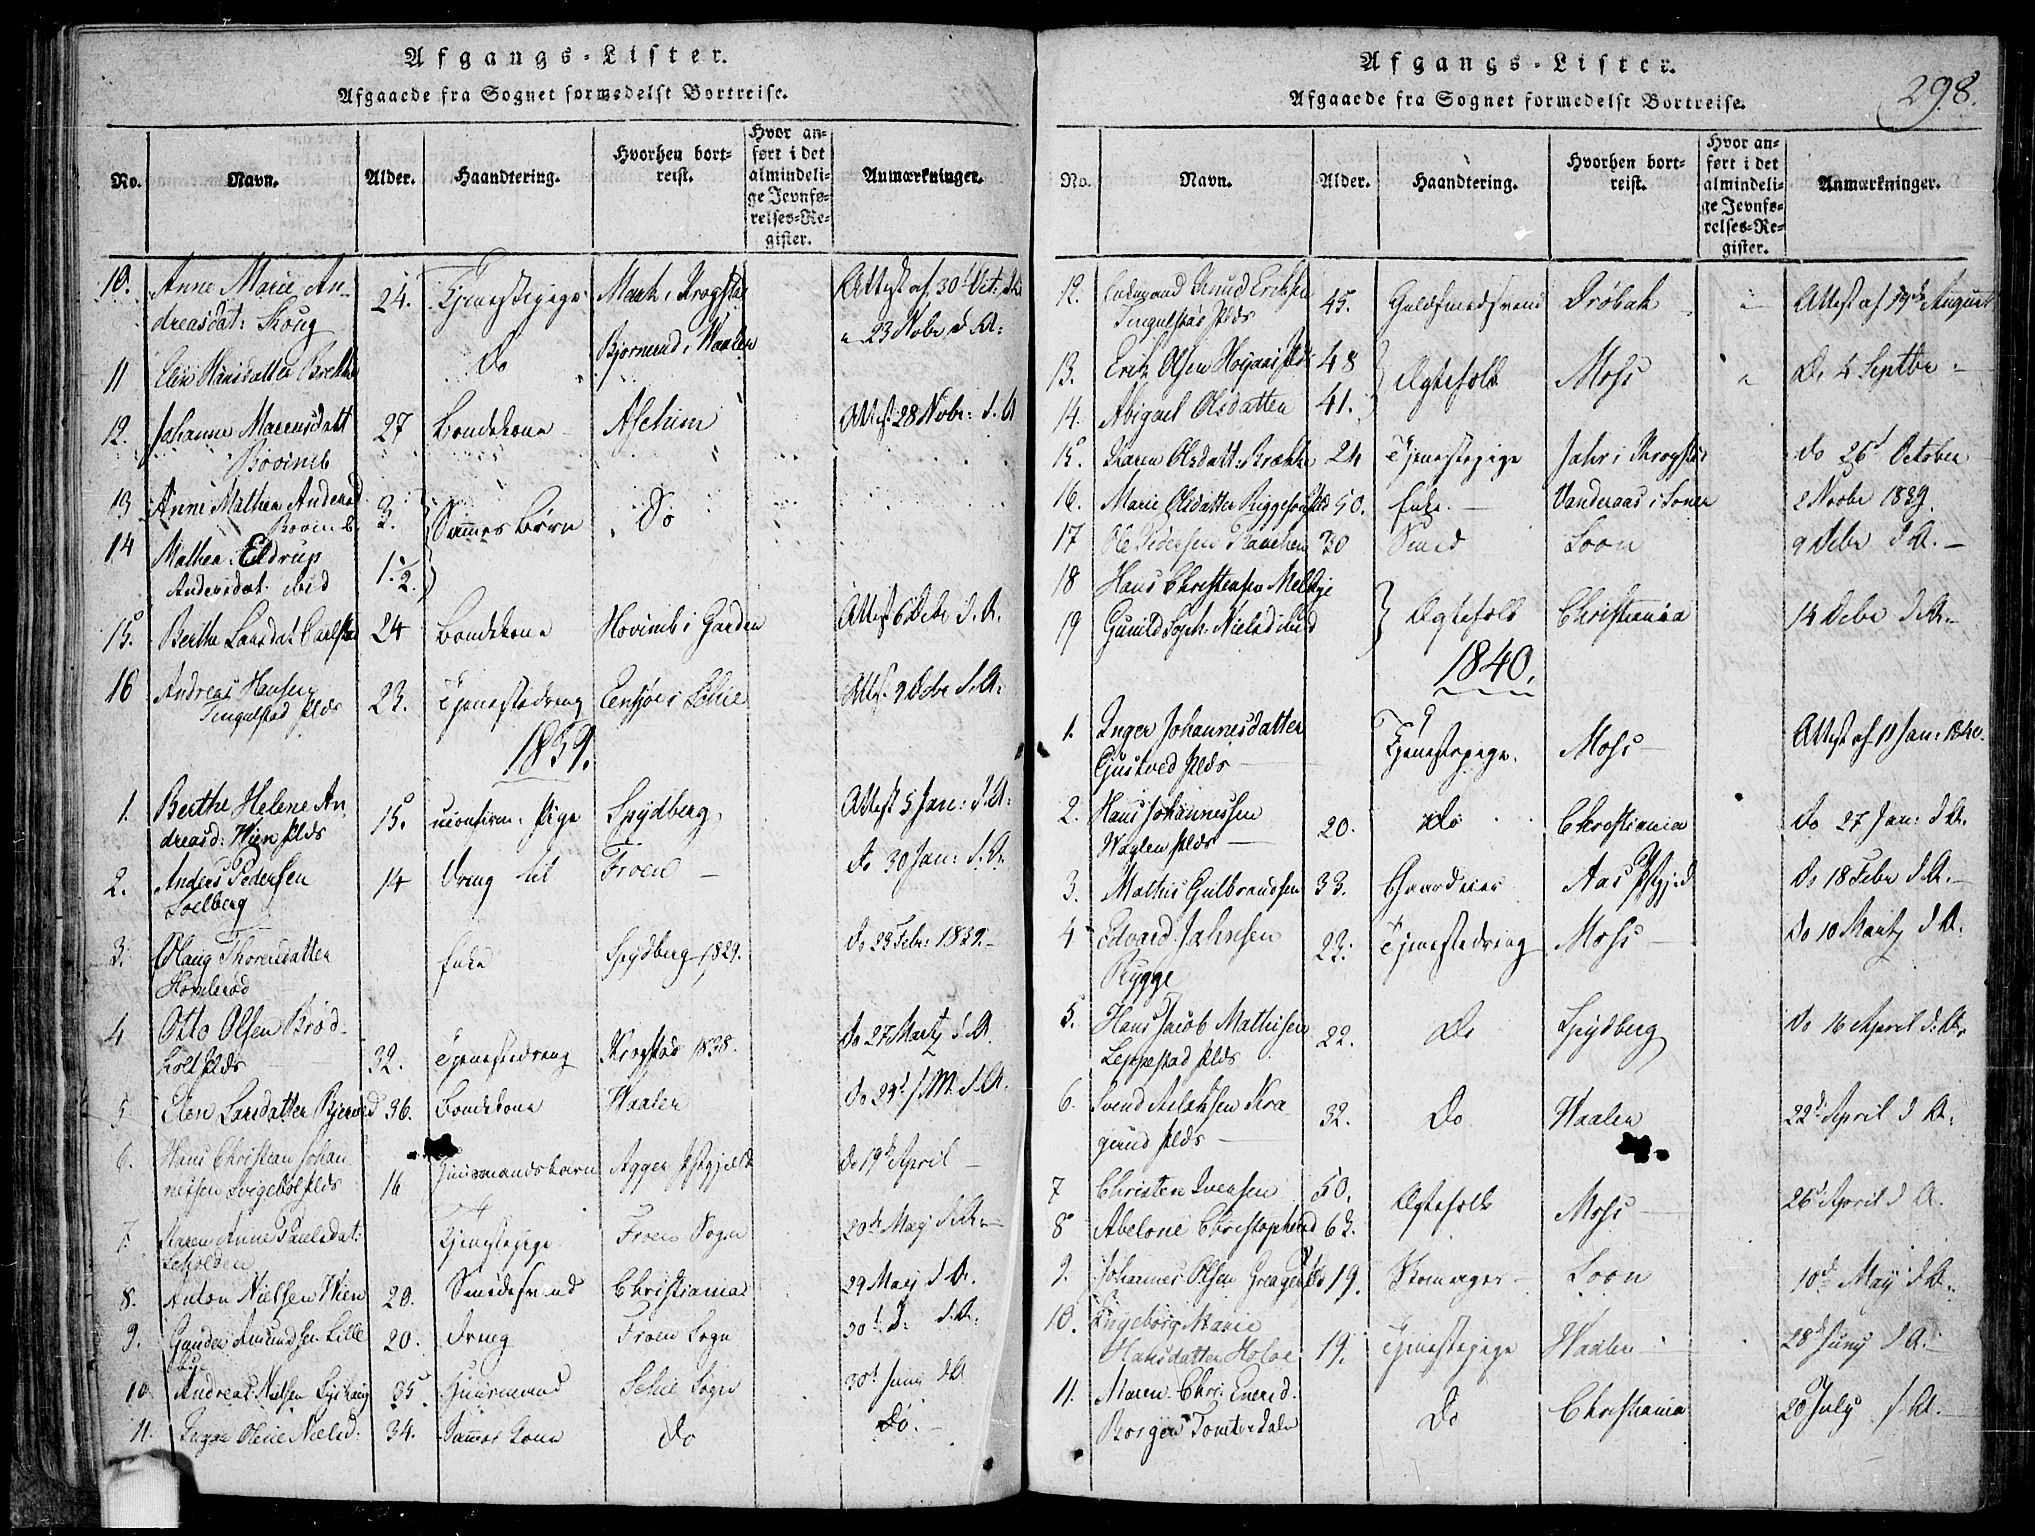 Afgangs-Lister.
Afgaaede fra Sognet formedelst Bortreise.
No. Navn. Alder. Haandtering. Hvorhen bortreist. Hvor anført i det almindelige Jevnførelses-Register. Anmærkninger.
10. Anne Marie An-
dreasdat: Skoug 24. Tjenestepige
11 Elen Hansdatter Brekke Do Bjornerud i Waaler 23 Nobr d. A:
12. Johanne Marensdatt 27 Bondekone Aschim Attest 28 Nobr: d. A
13 Anne Mathea Andersd 3. Sammes Børn Do
14 Mathea Eldrup
Andersdat. ibid 1 1/2.
15. Berthe Larsdat Carlstad 24 Bondekone Attest 6 Debr d. A.
16 Andreas Hansen
Tingulstad Plds 23. Tjenestedreng Attest 9 Debr d. A.
1839.
1. Berthe Helene An-
dreasd: Wien Plds 15. uconfirm. Pige Spydberg. Attest 5 Jan: d. A:
2. Anders Pedersen
Solberg 14 Dreng til Froen Do 30 Jan: d. A.
3. Olaug Thoresdatter
Homlerød Enke Spydberg 1829. Do 23 Febr: 1839.
4 Otto Olsen Brød-
holt Plds 32. Tjenestedreng Krogstad 1838. Do 27 Martz d. A.
5 Elen Larsdatter 36. Bondekone Waaler Do 29d s. M. d. A.
6. Hans Christian Johan
nesen Plds 16 Huusmandsbarn Agger Pstgjæld Do 19de April
7. Karen Anne Paulsdat: Tjenestepige Froen Sogn 20de May d. A.
8. Anton Nielsen Wien 20. Smedesvend Christiania 29 May d. A.
9. Gunder Amundsen Lille
bye 20. Dreng Froen Sogn 30t D: d. A.
10. Andreas Nielsen 35. Huusmand Schie Sogn 30d Juny d. A
11. Inger Oline Nielsd: 34. Sammes Kone Do Do.
298.
Afgangs-Lister.
Afgaaede fra Sognet formedelst Bortreise.
No. Navn. Alder. Haandtering. Hvorhen bortreist. Hvor anført i det almindelige Jevnførelses-Register. Anmærkninger.
12. Knud Eriksen
Tingulstad Plds 45. Guldsmedsvend Drøbak Attest af 19de August
13. Erik Olsen 48 Ægtefolk Moss Do 4 Septbr
14. Abigael Olsdatter 41.
15. Karen Olsdatt: Brække 24 Tjenestepige Jahr i Krogstad Do 26d October
16. Marie Olsdatter 50. Enke Vanderaas i Soner 2 Novbr 1839.
17 Ole Pedersen 30 Smed Soon 9 Debr d. A.
18 Hans Christensen
19 Gunild Soph. Nielsd ibid Ægtefolk Christiania 14 Debr d. A.
1840.
1. Inger Johannesdatter
Gustved Plds Tjenestepige. Moss Attest af 11 Jan: 1840.
2. Hans Johannessen
Waalen Plds 20. Do Christiania Do 27 Jan: d. A.
3. Mathis Gulbrandsen 33. Gaardeier Aas Pstgjd Do 18 Febr d. A.
4 Edvard Jahnsen
Rygge 22. Tjenestedreng Moss Do 10 Martz d. A.
5. Hans Jacob Mathisen
Leppestad Plds 22. Do Spydberg Do 16 April d. A.
6. Svend Aslaksen Kra-
gerud Plds 32. Do Waaler 22d April d. A.
7 Christen Ivensen 50. Ægtefolk Moss 26d April d. A.
8 Abelone Christophersd 63.
9. Johannes Olsen 19. Skomager Soon 10d May d. A.
10. Ingeborg Marie
Hansdatter Holoe 19. Tjenestepige Waaler 28d Juny d. A.
11. Maren Chri: Enersd.
Borgen Tomterdalen Do Christiania 20 July d. A.